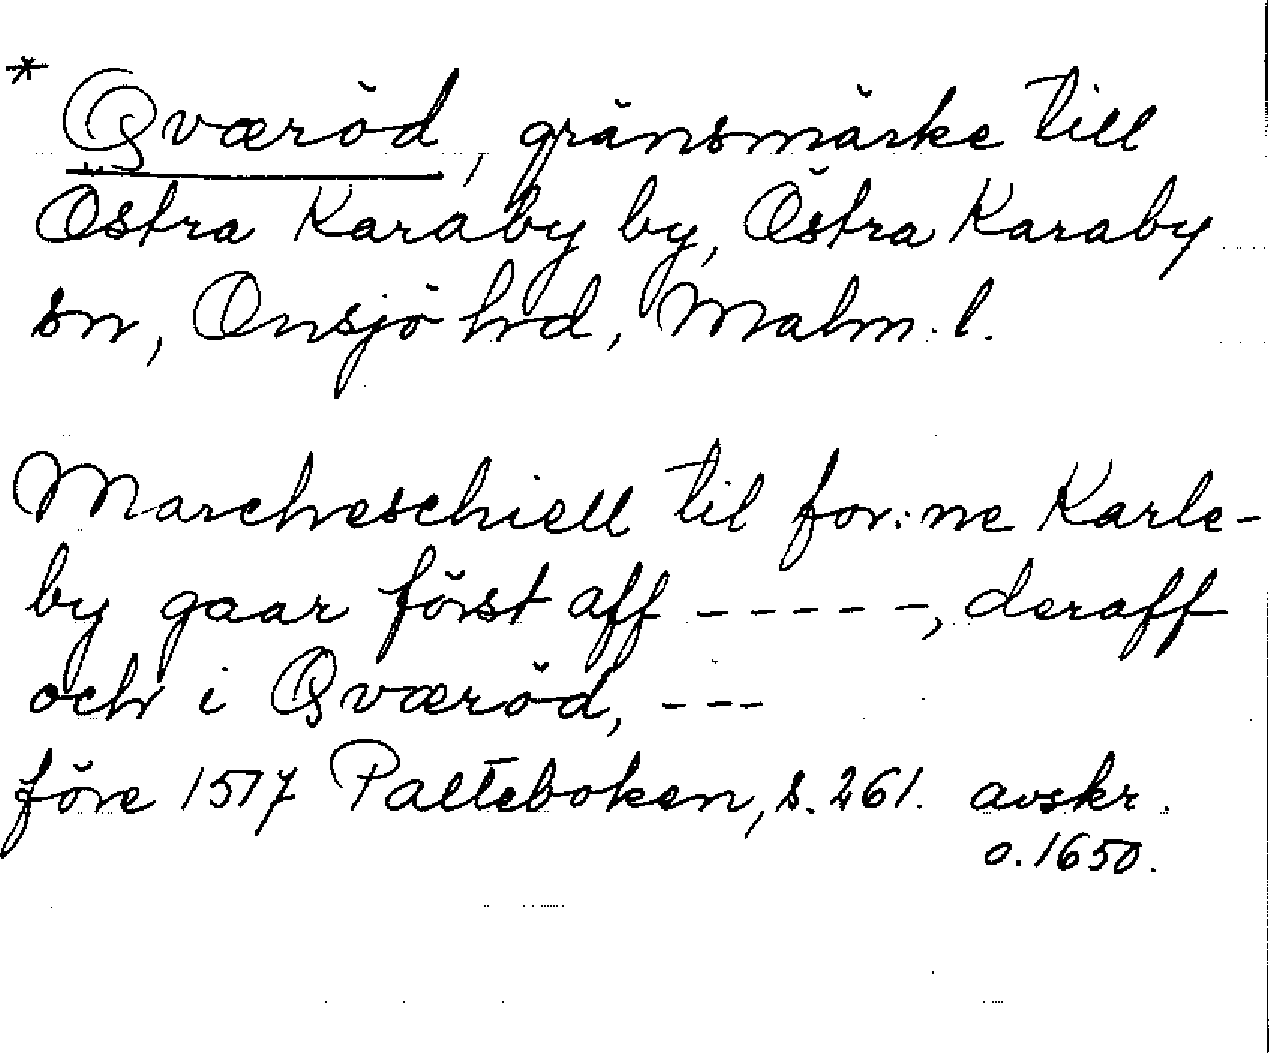 * Qværöd, gränsmärke till
Östra Karaby by, Östra Karaby
sn, Onsjö hd, Malm. l.
Marcheschiell til for:ne Karle-
by gaar först aff - - - - -, deraff
och i Qværöd, - - -
före 1517 Palteboken, s. 261. avskr.
o. 1650.